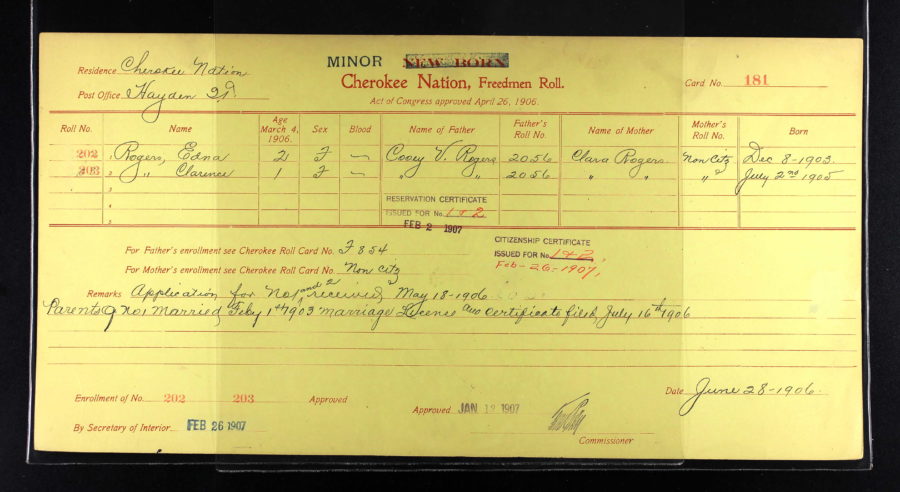 MINOR NEW BORN
Cherokee Nation, Freedmen Roll.
Act of Congress approved April 26, 1906.
Residence Cherokee Nation
Post Office Hayden I.T.
Card No. 181
Roll No. Name Age March 4, 1906. Sex Blood Name of Father Father's Roll No. Name of Mother Mother's Roll No. Born
202 1 Rogers, Edna 2 F — Cooey V. Rogers 2056 Clara Rogers Non Citz Dec 8-1903.
203 2 " Clarence 1 F — " " 2056 " " " July 2nd 1905
3
4
5
RESERVATION CERTIFICATE
ISSUED FOR No. 1 & 2
FEB 2 1907
For Father's enrollment see Cherokee Roll Card No. F 854
For Mother's enrollment see Cherokee Roll Card No. Non Citz
CITIZENSHIP CERTIFICATE
ISSUED FOR No. 1 & 2.
Feb-26-1907.
Remarks Application for No 1 and 2 received, May 18-1906
Parents of No 1 Married Feby 1st 1903 marriage License and certificate filed, July 16th 1906
Enrollment of No. 202 203 Approved
By Secretary of Interior. FEB 26 1907
Approved JAN 12 1907
Commissioner
Date June 28-1906.